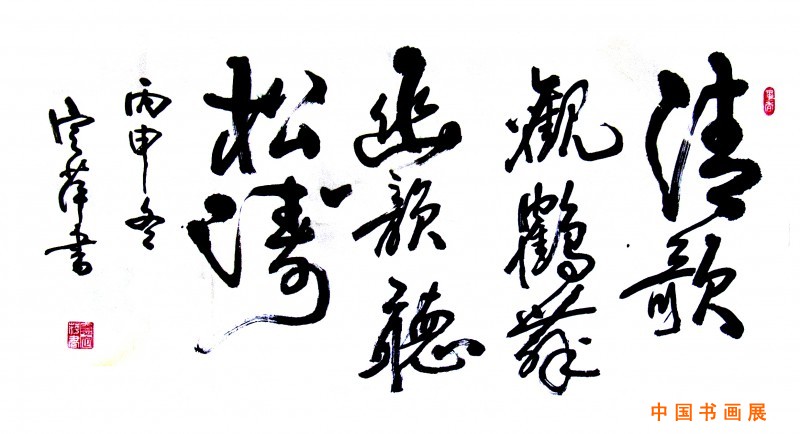 清歌
觀鶴舞
幽韻聽
松濤
丙申冬
书
中国书画展